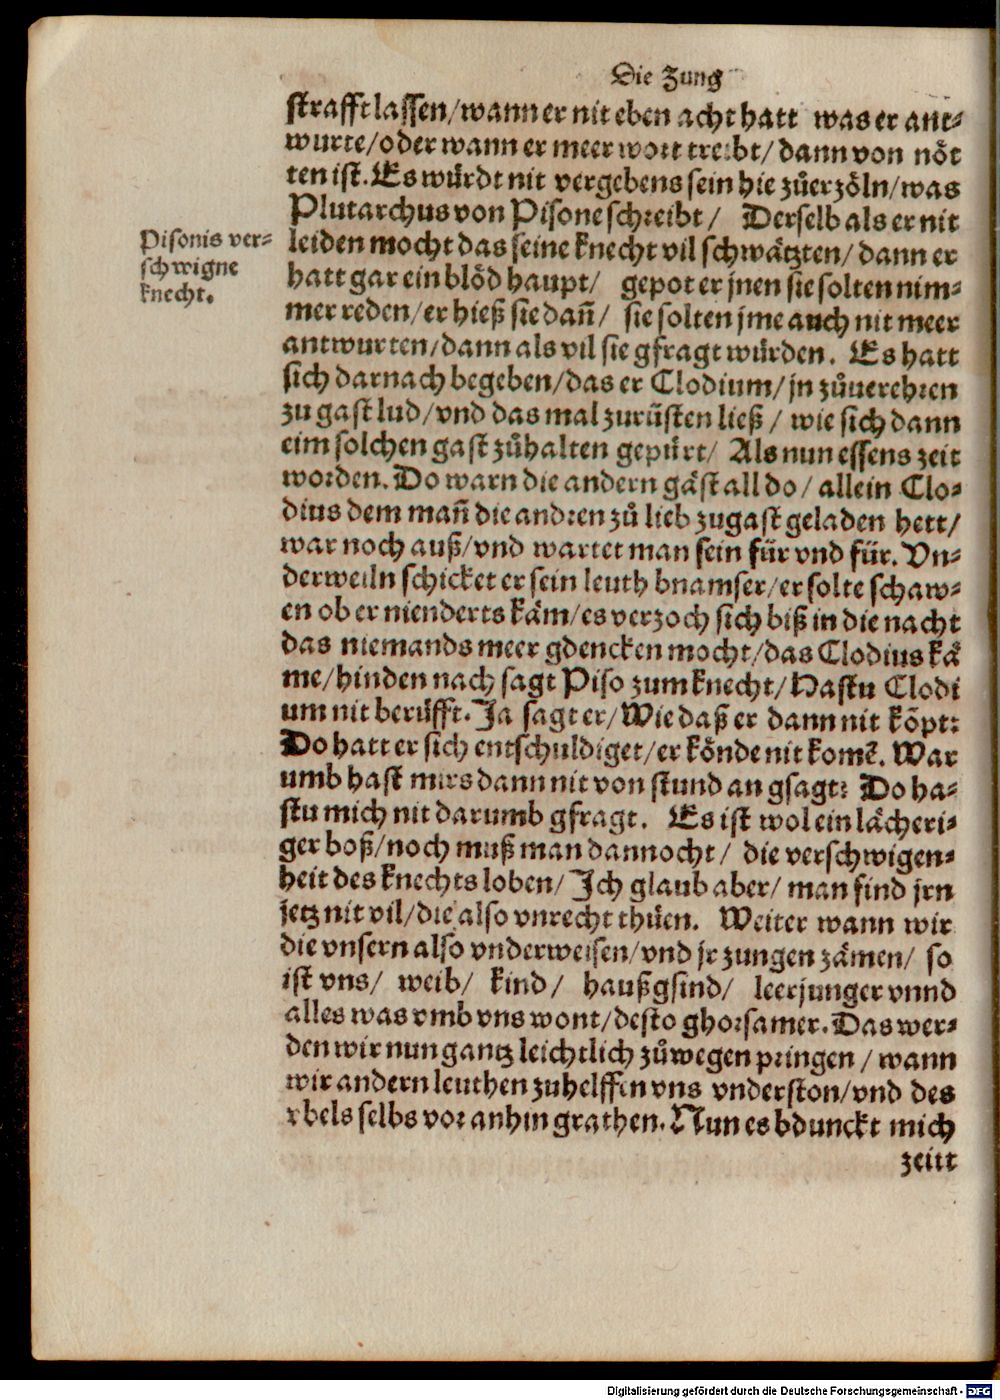 Die Zung
strafft lassen/wann er nit eben acht hatt was er ant-
wurte/oder wann er meer wort treibt/dann von nöt
ten ist. Es würdt nit vergebens sein hie zůerzöln/was
Plutarchus von Pisone schreibt/ Derselb als er nit
leiden mocht das seine knecht vil schwätzten/dann er
hatt gar ein blöd haupt/ gepot er jnen sie solten nim-
mer reden/er hieß sie dañ/ sie solten jme auch nit meer
antwurten/dann als vil sie gfragt würden. Es hatt
sich darnach begeben/das er Clodium/jn zůuerehren
zu gast lud/vnd das mal zurüsten ließ/ wie sich dann
eim solchen gast zůhalten gepürt/ Als nun essens zeit
worden. Do warn die andern gäst all do/allein Clo-
dius dem mañ die andren zů lieb zugast geladen hett/
war noch auß/vnd wartet man sein für vnd für. Vn-
derweiln schicket er sein leuth bnamser/er solte schaw-
en ob er nienderts käm/es verzoch sich biß in die nacht
das niemands meer gdencken mocht/das Clodius kä
me/hinden nach sagt Piso zum knecht/Hastu Clodi
um nit berüfft. Ja sagt er/Wie daß er dann nit kõpt:
Do hatt er sich entschuldiget/er könde nit komẽ. War
umb hast mirs dann nit von stund an gsagt: Do ha-
stu mich nit darumb gfragt. Es ist wol ein lächeri-
ger boß/noch muß man dannocht/ die verschwigen-
heit des knechts loben/ Ich glaub aber/ man find jrn
jetz nit vil/die also vnrecht thüen. Weiter wann wir
die vnsern also vnderweisen/vnd jr zungen zämen/ so
ist vns/ weib/ kind/ haußgsind/ leerjunger vnnd
alles was vmb vns wont/desto ghorsamer. Das wer-
den wir nun gantz leichtlich zůwegen pringen/wann
wir andern leuthen zuhelffen vns vnderston/vnd des
vbels selbs vor anhin grathen. Nun es bdunckt mich
zeitt
Pisonis ver-
schwigne
knecht.
Digitalisierung gefördert durch die Deutsche Forschungsgemeinschaft - DFG